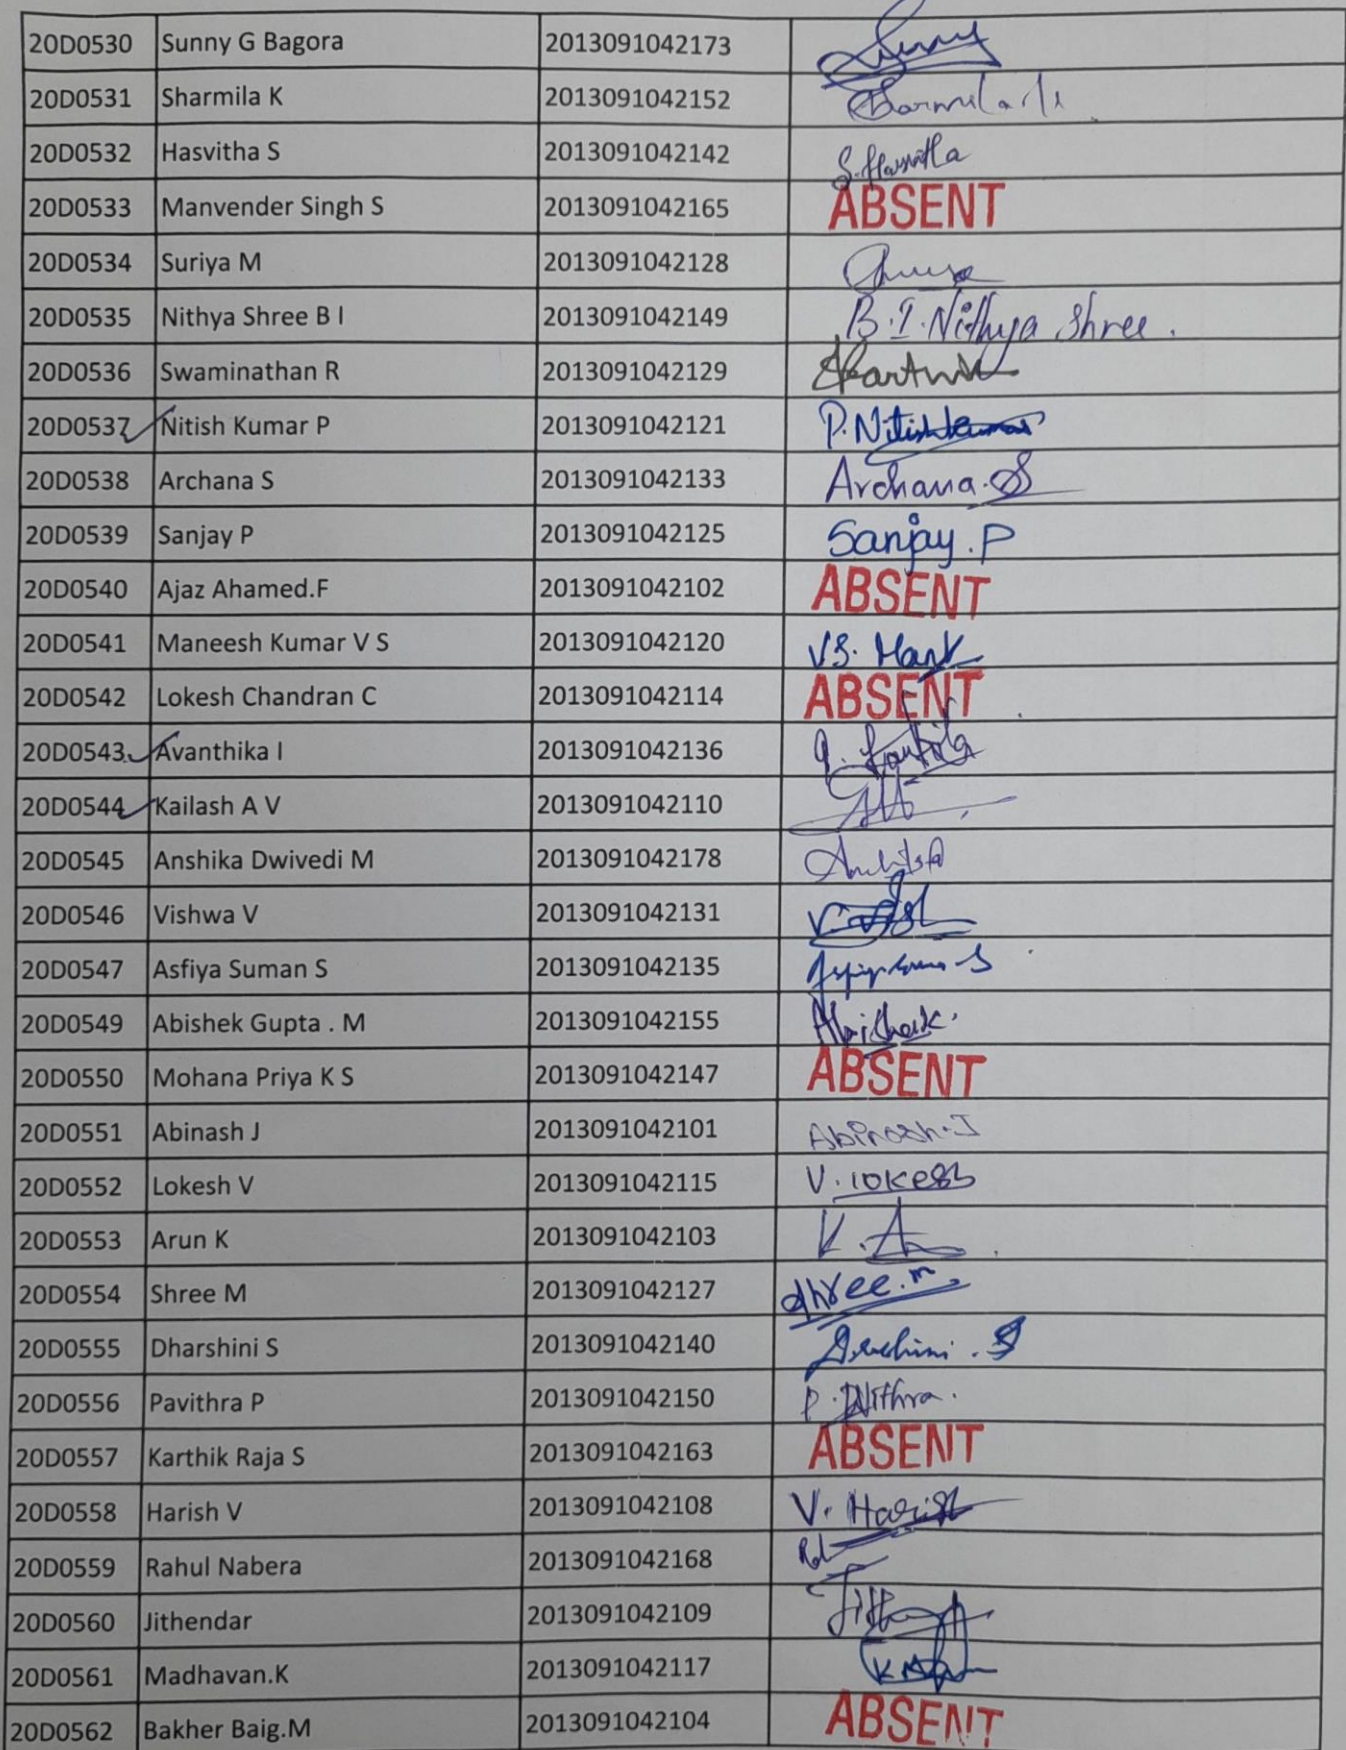 20D0530 Sunny G Bagora 2013091042173 Sunny
20D0531 Sharmila K 2013091042152
20D0532 Hasvitha S 2013091042142 S. Hasvitha
20D0533 Manvender Singh S 2013091042165 ABSENT
20D0534 Suriya M 2013091042128
20D0535 Nithya Shree B I 2013091042149 B.I. Nithya Shree.
20D0536 Swaminathan R 2013091042129
20D0537 Nitish Kumar P 2013091042121 P. Nitish Kumar
20D0538 Archana S 2013091042133 Archana. S
20D0539 Sanjay P 2013091042125 Sanjay. P
20D0540 Ajaz Ahamed.F 2013091042102 ABSENT
20D0541 Maneesh Kumar V S 2013091042120 V.S.
20D0542 Lokesh Chandran C 2013091042114 ABSENT
20D0543 Avanthika I 2013091042136
20D0544 Kailash A V 2013091042110
20D0545 Anshika Dwivedi M 2013091042178
20D0546 Vishwa V 2013091042131
20D0547 Asfiya Suman S 2013091042135
20D0549 Abishek Gupta . M 2013091042155
20D0550 Mohana Priya K S 2013091042147 ABSENT
20D0551 Abinash J 2013091042101 Abinash. J
20D0552 Lokesh V 2013091042115 V. lokesh
20D0553 Arun K 2013091042103 K. A
20D0554 Shree M 2013091042127 Shree. m
20D0555 Dharshini S 2013091042140
20D0556 Pavithra P 2013091042150 P. Pavithra.
20D0557 Karthik Raja S 2013091042163 ABSENT
20D0558 Harish V 2013091042108 V. Harish
20D0559 Rahul Nabera 2013091042168
20D0560 Jithendar 2013091042109
20D0561 Madhavan.K 2013091042117
20D0562 Bakher Baig.M 2013091042104 ABSENT